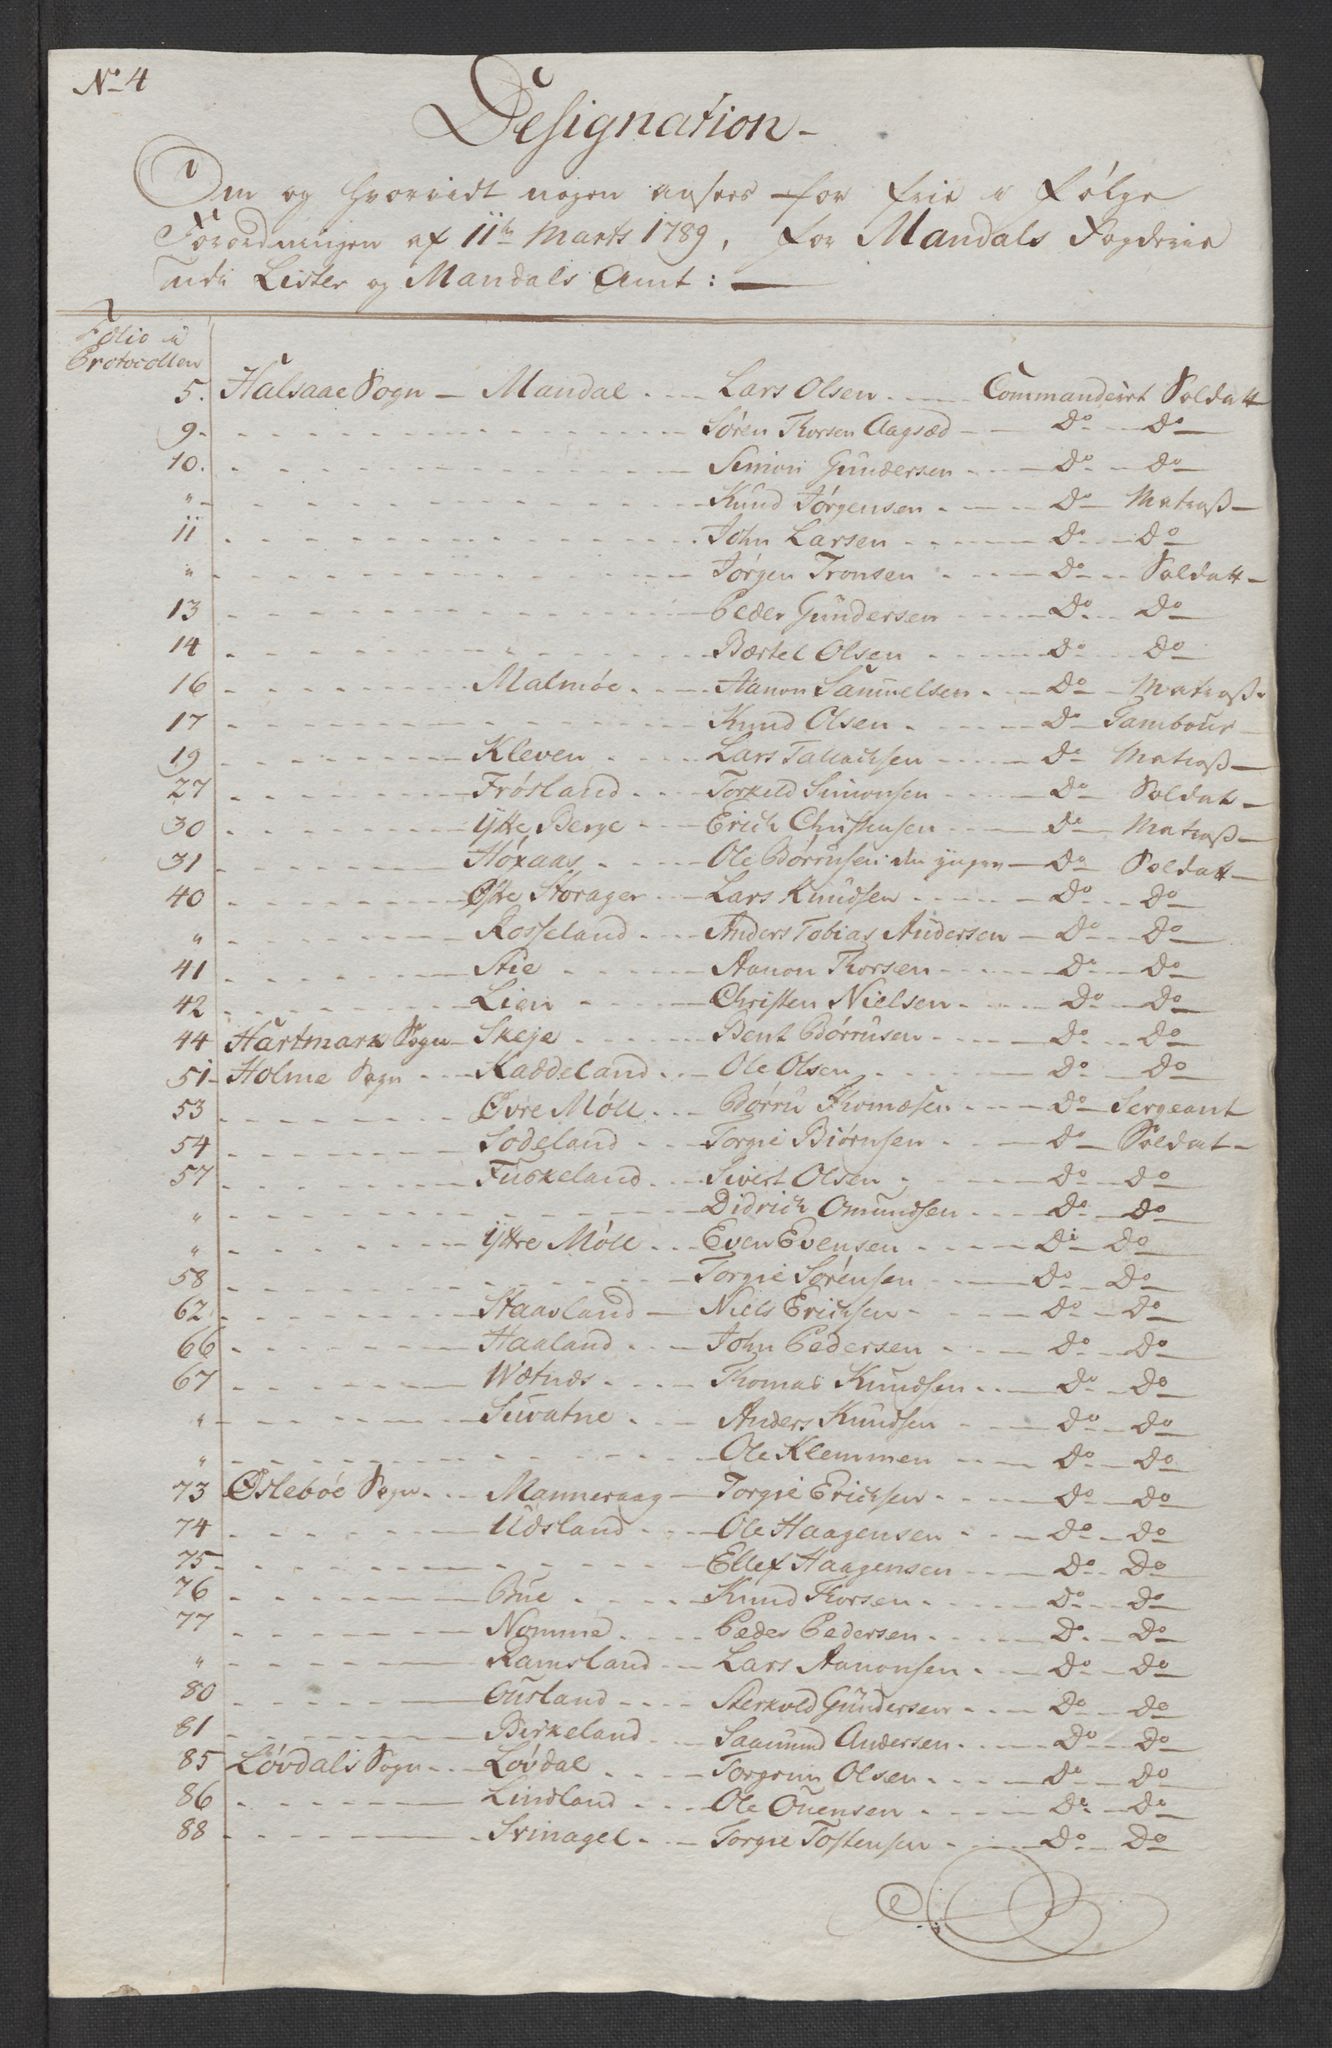 No 4
Designation
Om og hvorvidt nogen ansees for frie i følge
Forordningen af 11te Marts 1789, for Mandals Fogderie
udi Lister og Mandals Amt:
Folio i
Protocollen
5. Halsaae Sogn Mandal Lars Olsen Commandeert Soldatt
9. Søren Thorsen Aagsæd Do Do
10. Simon Gundersen Do Do
" Knud Jørgensen Do Matroß
11 John Larsen Do Do
" Jørgen Tronsen Do Soldatt
13 Peder Gundersen Do Do
14 Bærtel Olsen Do Do
16 Malmøe Aanon Samuelsen Do Matroß
17 Knud Olsen Do Tambour
19 Kleven Lars Tallachsen Do Matroß
27 Frøsland Torkeld Simonsen Do Soldat
30 Ytte Berge Erich Christensen Do Matroß
31 Høxaas Ole Børrusen den yngre Do Soldatt
40 Øfte Storager Lars Knudsen Do Do
" Rosseland Anders Tobias Andersen Do Do
41 Stie Aanon Thorsen Do Do
42 Lien Christen Nielsen Do Do
44 Hartmark Sogn Skeje Bent Børrusen Do Do
51 Holme Sogn Kaddeland Ole Olsen Do Do
53 Øvre Møll Børru Thomæsen Do Sergeant
54 Sodeland Torgie Biørnsen Do Soldat
57 Fuskeland Sivert Olsen Do Do
" Didrich Omundsen Do Do
" Yttre Møll Even Evensen Do Do
58 Torgie Sørensen Do Do
62 Staasland Niels Erichsen Do Do
66 Haaland John Pedersen Do Do
67 Wætnæs Thomas Knudsen Do Do
" Suvatne Anders Knudsen Do Do
" Ole Klemmen Do Do
73 Øslebøe Sogn Manneraag Torgie Erichsen Do Do
74 Udsland Ole Haagensen Do Do
75 Ellef Haagensen Do Do
76 Bue Knud Thorsen Do Do
77 Nomme Peder Pedersen Do Do
" Ramsland Lars Aanonsen Do Do
80 Ousland Sterkold Gundersen Do Do
81 Birkeland Saamund Andersen Do Do
85 Løvdals Sogn Løvdal Torgrim Olsen Do Do
86 Lindland Ole Ouensen Do Do
88 Svinagel Torgie Tostensen Do Do